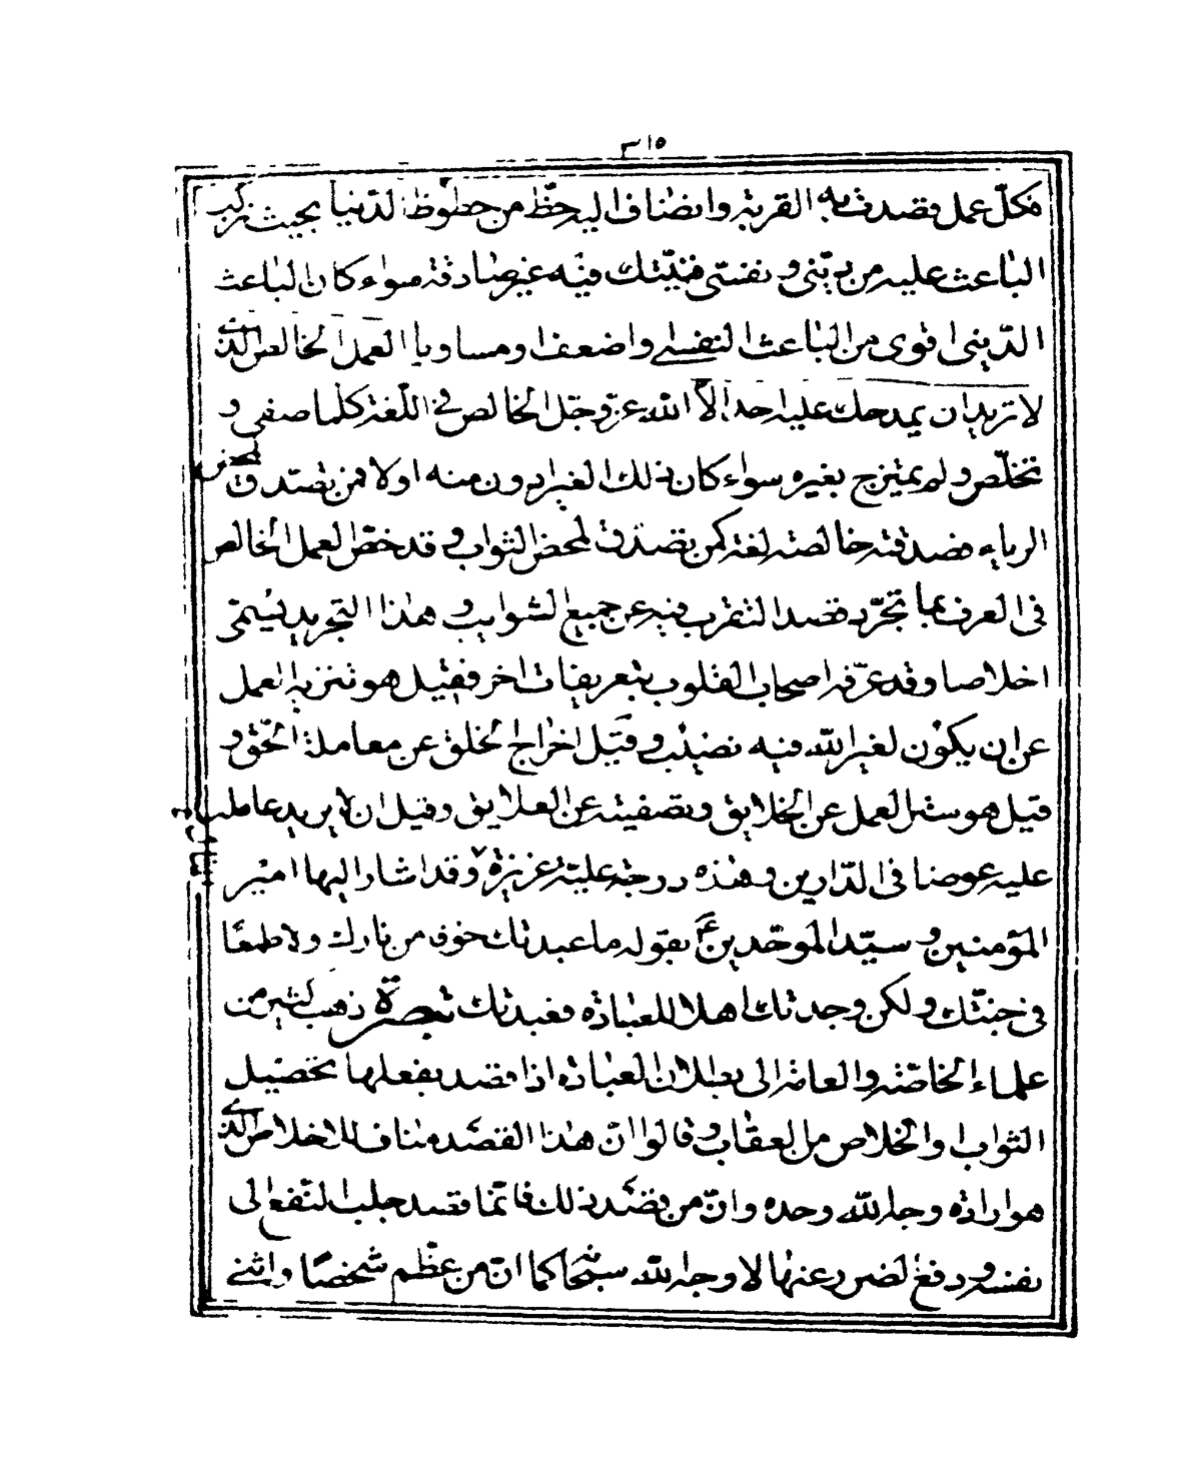 ٣١٥
فكلّ عمل قصدت به القربة وانضاف اليه حظّ من حظوظ الدّنيا بحيث تركب
الباعث عليه من دينى و نفسى فنيّتك فيه غير صادقة سواء كان الباعث
الدّينى اقوى من الباعث النفسى واضعف او مساويا العمل الخالص الذى
لا تريد ان يمدحك عليه احد الّا الله عزّ وجلّ الخالص فى اللّغة كلما صفى و
تخلّص ولم يمتزج بغيره سواء كان ذلك الغير ادون منه اولا فمن تصدق لمحض
الرياء فصدقته خالصة لغة كمن تصدّق لمحض الثواب و قد خصّ العمل الخالص
فى العرف بما تجرّد قصد التقرب فيه عن جميع الشوايب و هذا التجريد يسمّى
اخلاصا وقد عرّفه اصحاب القلوب بتعريفات اخر فقيل هو تنزيه العمل
عن ان يكون لغير الله فيه نصيب و قيل اخراج الخلق عن معاملة الحقّ و
قيل هو ستر العمل عن الخلايق و تصفيته عن العلايق وقيل ان لا يريد عامله
عليه عوضا فى الدّارين و هذه درجة عليّة عزيزة وقد اشار اليها امير
المؤمنين و سيّد الموحّدين ع بقوله ما عبدتك خوفا من نارك ولا طمعًا
فى جنّتك ولكن وجدتك اهلا للعبادة فعبدتك تبصرة ذهب كثير من
علماء الخاصّة والعامّة الى بطلان العبادة اذا قصد بفعلها تحصيل
الثواب او الخلاص من العقاب و قالوا انّ هذا القصد مناف للاخلاص الذى
هو ارادة وجه الله وحده وانّ من قصد ذلك فانّما قصد جلب النّفع الى
نفسه و دفع الضرر عنها لا وجه الله سبحانه كما انّ من عظّم شخصًا واثنى